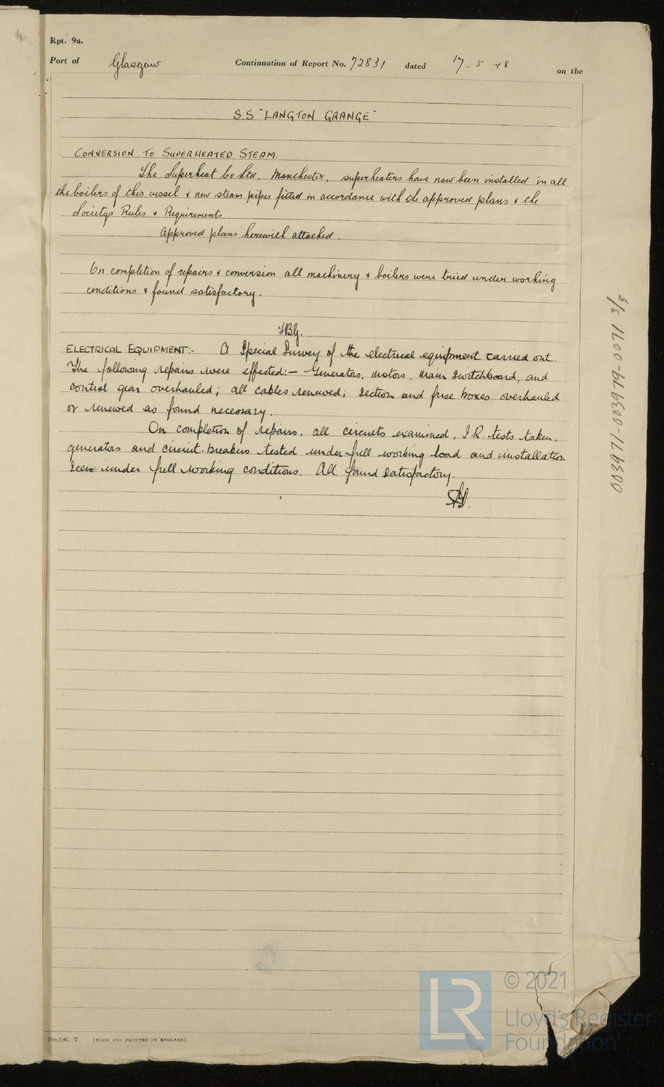 Rpt. 9a.
Port of Glasgow Continuation of Report No. 72831 dated 17-5-48 on the
S.S "LANGTON GRANGE"
CONVERSION TO SUPERHEATED STEAM.
The Superheat Co Ltd, Manchester, superheaters have now been installed in all
the boilers of this vessel & new steam pipes fitted in accordance with the approved plans & the
Societys Rules & Requirements
Approved plans herewith attached.
On completion of repairs & conversion all machinery & boilers were tried under working
conditions & found satisfactory.
ELECTRICAL EQUIPMENT:- A Special Survey of the electrical equipment carried out.
The following repairs were effected:- Generators, motors, main switchboard, and
control gear overhauled; all cables renewed; section and fuse boxes overhauled
or renewed as found necessary.
On completion of repairs, all circuits examined, I.R. tests taken,
generators and circuit breakers tested under full working load and installation
seen under full working conditions. All found satisfactory.
003971-003976-0011 3/3
[MADE AND PRINTED IN ENGLAND]
LR
© 2021
Lloyd's Register
Foundation